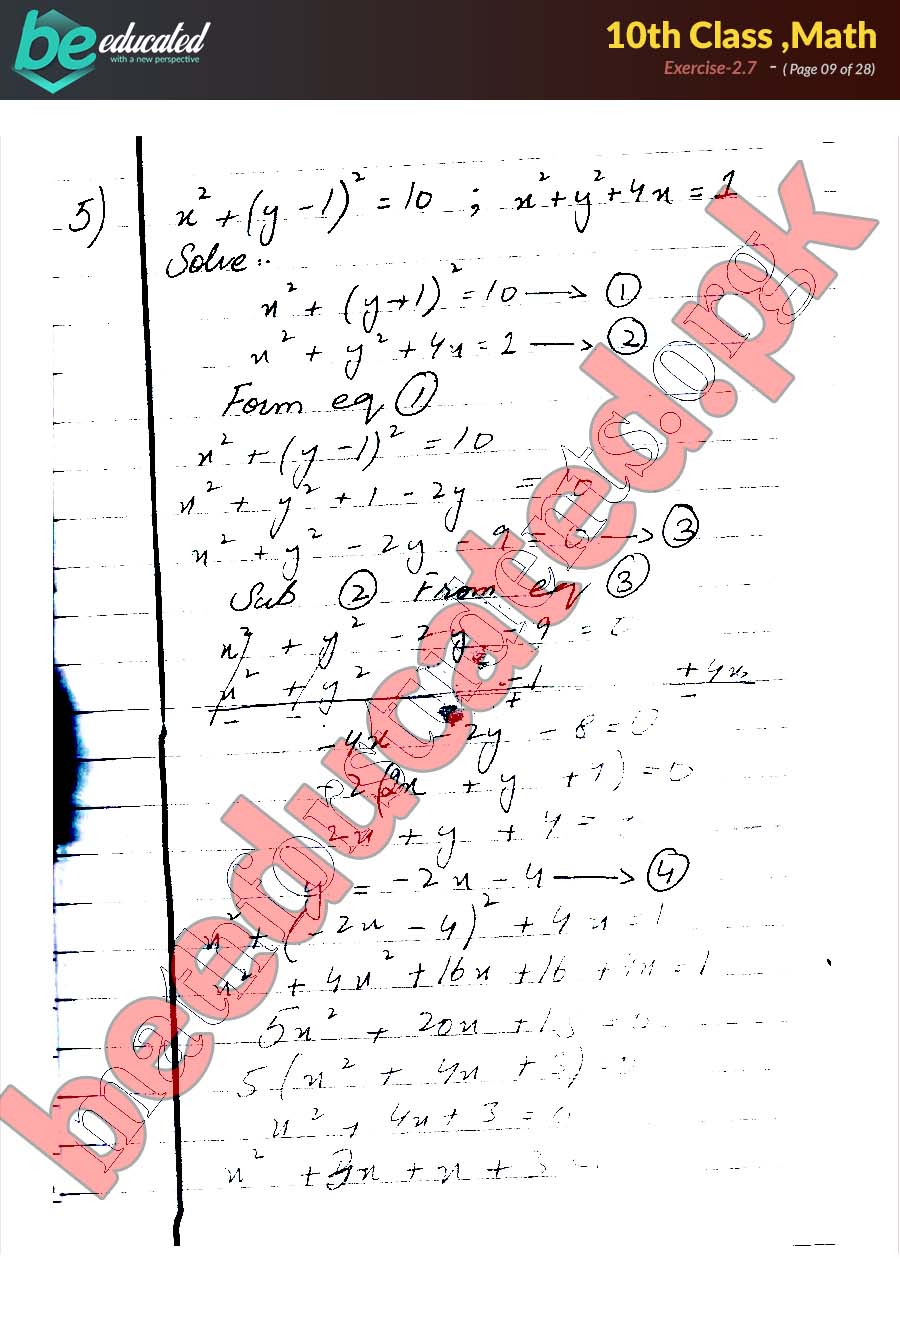 be educated
with a new perspective
10th Class ,Math
Exercise-2.7 - ( Page 09 of 28)
5) x² + (y - 1)² = 10 ; x² + y² + 4x = 1
Solve:-
x² + (y+1)² = 10 → ①
x² + y² + 4x = 2 → ②
Form eq ①
x² + (y - 1)² = 10
x² + y² + 1 - 2y = 10
x² + y² - 2y - 9 = 0 → ③
Sub ② From eq ③
x² + y² - 2y - 9 = 0
x² + y² - 1 + 4x
- - + -
-4x - 2y - 8 = 0
2(2x + y + 1) = 0
2x + y + 4 =
y = -2x - 4 → ④
x² + (-2x - 4)² + 4x = 1
x² + 4x² + 16x + 16 + 4x = 1
5x² + 20x + 15 = 0
5(x² + 4x + 3) = 0
x² + 4x + 3 = 0
x² + 3x + x + 3 =
beeducated.pk